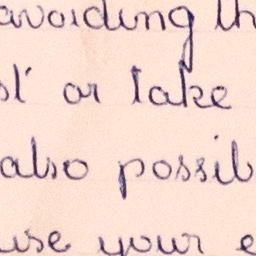 avoiding th
st' or take
also possib
use your e